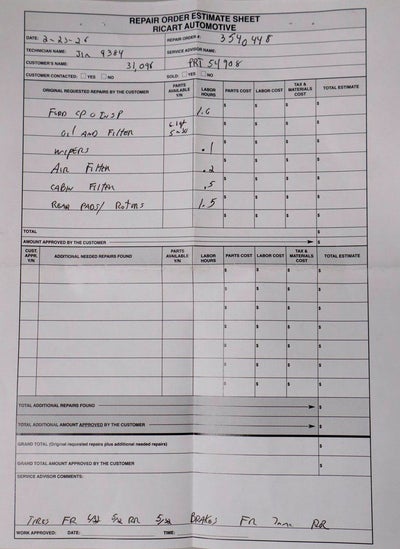 REPAIR ORDER ESTIMATE SHEET
RICART AUTOMOTIVE
DATE: 2-23-26 REPAIR ORDER #: 3540448
TECHNICIAN NAME: Jim 9384 SERVICE ADVISOR NAME:
CUSTOMER'S NAME: 31,096 PRT 54908
CUSTOMER CONTACTED: YES NO SOLD: YES NO
ORIGINAL REQUESTED REPAIRS BY THE CUSTOMER PARTS AVAILABLE Y/N LABOR HOURS PARTS COST LABOR COST TAX & MATERIALS COST TOTAL ESTIMATE
Ford CPO INSP 1.6 $ $ $ $
Oil AND Filter 5-30 $ $ $ $
WIPERS .1 $ $ $ $
AIR Filter .2 $ $ $ $
CABIN Filter .5 $ $ $ $
REAR PADS/ Rotors 1.5 $ $ $ $
TOTAL $
AMOUNT APPROVED BY THE CUSTOMER $
CUST. APPR. Y/N ADDITIONAL NEEDED REPAIRS FOUND PARTS AVAILABLE Y/N LABOR HOURS PARTS COST LABOR COST TAX & MATERIALS COST TOTAL ESTIMATE
$ $ $ $
$ $ $ $
$ $ $ $
$ $ $ $
$ $ $ $
$ $ $ $
$ $ $ $
TOTAL ADDITIONAL REPAIRS FOUND $
TOTAL ADDITIONAL AMOUNT APPROVED BY THE CUSTOMER $
GRAND TOTAL (Original requested repairs plus additional needed repairs) $
GRAND TOTAL AMOUNT APPROVED BY THE CUSTOMER $
SERVICE ADVISOR COMMENTS:
TIRES FR RR 5/32 BRAKES FR 7mm RR
WORK APPROVED: DATE: TIME: